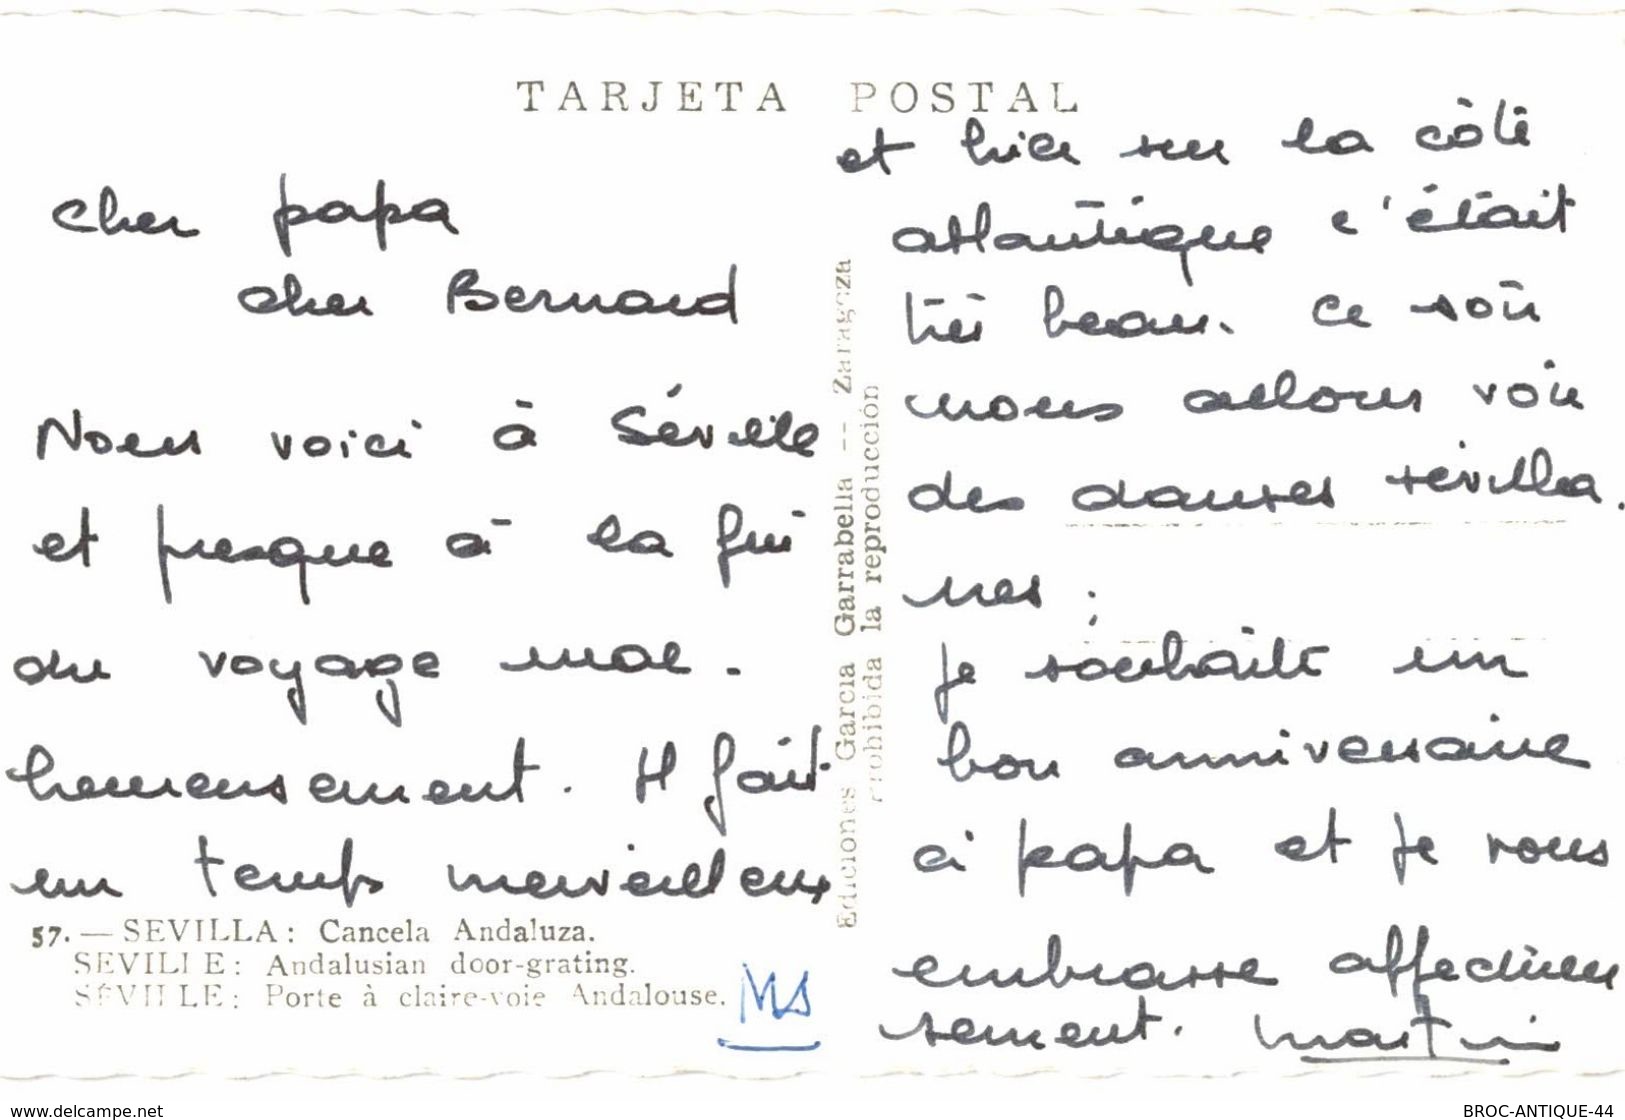 TARJETA POSTAL
cher papa
cher Bernard
Nous voici à Séville
et presque à la fin
du voyage mal-
heureusement. Il fait
un temps merveilleux
57. — SEVILLA: Cancela Andaluza.
SEVILLE: Andalusian door-grating.
SÉVILLE: Porte à claire-voie Andalouse.
MS
Ediciones García Garrabella -- Zaragoza
Prohibida la reproducción
et hier sur la côte
atlantique c'était
très beau. Ce soir
nous allons voir
des danses sévilla.
nes.
Je souhaite un
bon anniversaire
à papa et je vous
embrasse affectueu
sement. Martin
www.delcampe.net
BROC-ANTIQUE-44